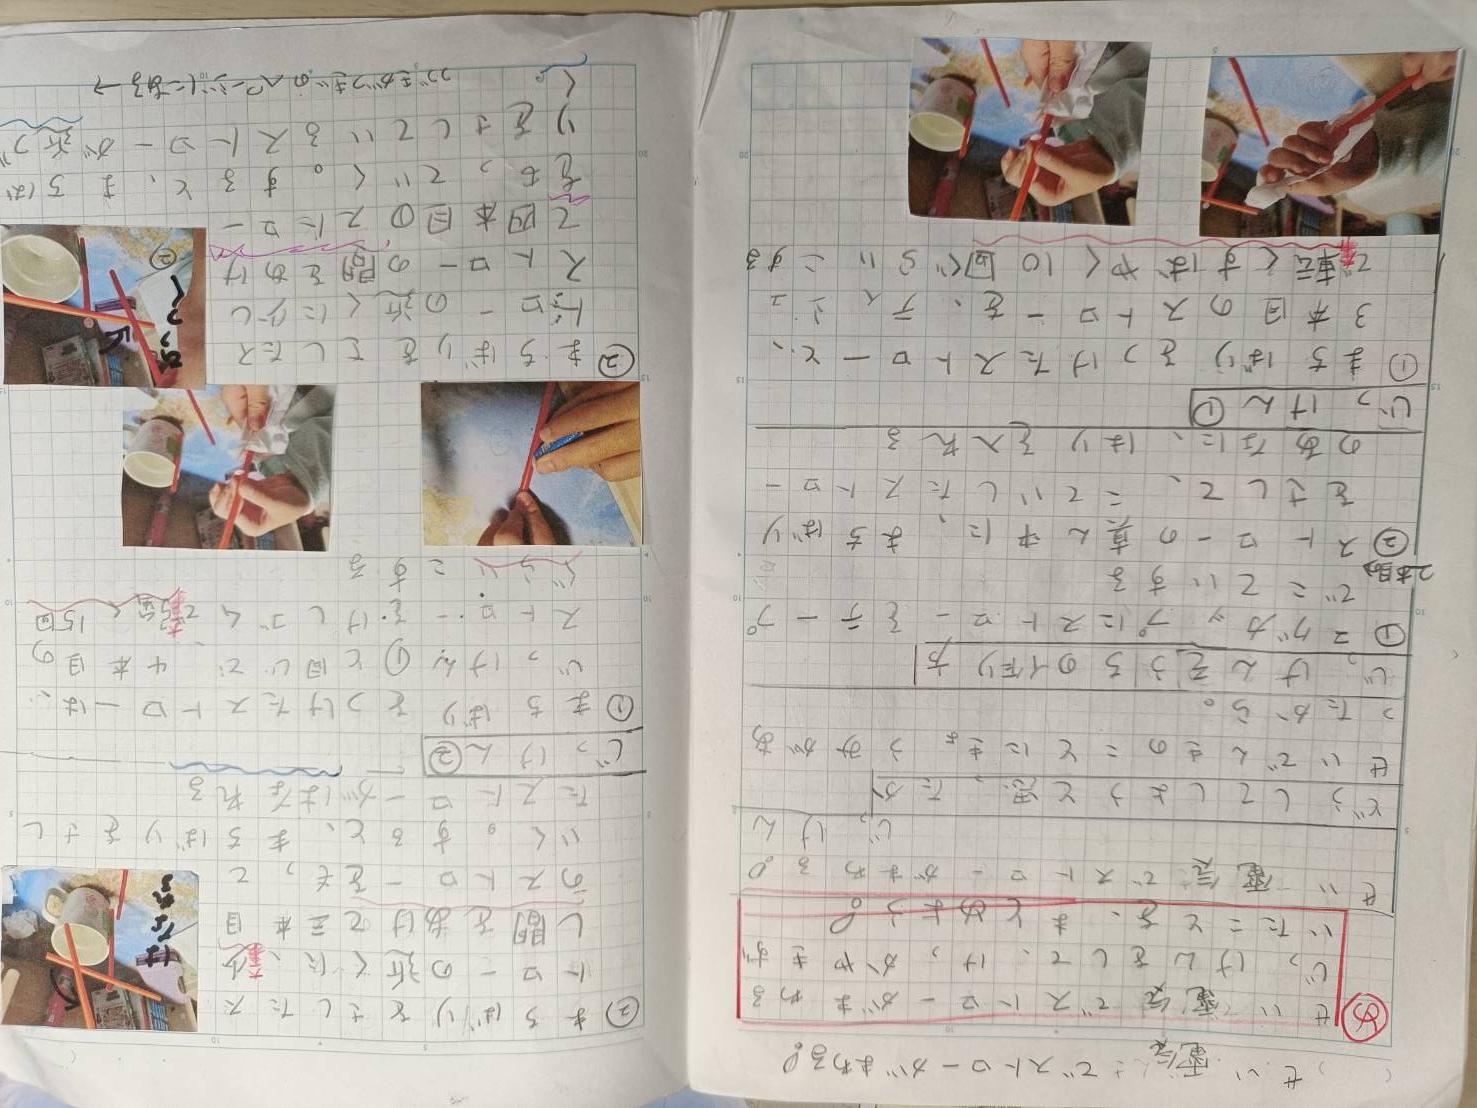 せい電気でストローがまわる?
め
せい電気でストローがまわる
じっけんをして、けっかやきが
いたことを、まとめよう?
せい電気でストローがまわる?
じっけん
どうしてしようと思ったか
せいでんきのことにきょうみがあ
ったから。
じっけんそうちの作り方
① カップにストローをテープ
でこていする
2本目の
②ストローの真ん中に、まちばり
をさして、こていしたストロー
のあなに、はりを入れる
じっけん①
①まちばりをつけたストローと、
3本目のストローを、ティシュ
で軽くすばやく10回ぐらいこする
②まちばりをさしたス
トローの近くに、少
し間をあけて三本目
のストローをもって
いく。すると、まちばりをさし
たストローがはなれる
はなれる
じっけん②
①まちばりをつけたストローは、
じっけん①と同じで、4本目の
ストローをけしゴムで軽く15回
ぐらいこする
②まちばりをさしたス
トローの近くに少し
ストローの間をあけ
て四本目のストロー
をもっていく。すると、まちば
りをさしているストローが近づ
く。
②
つづきがつぎのページにある→